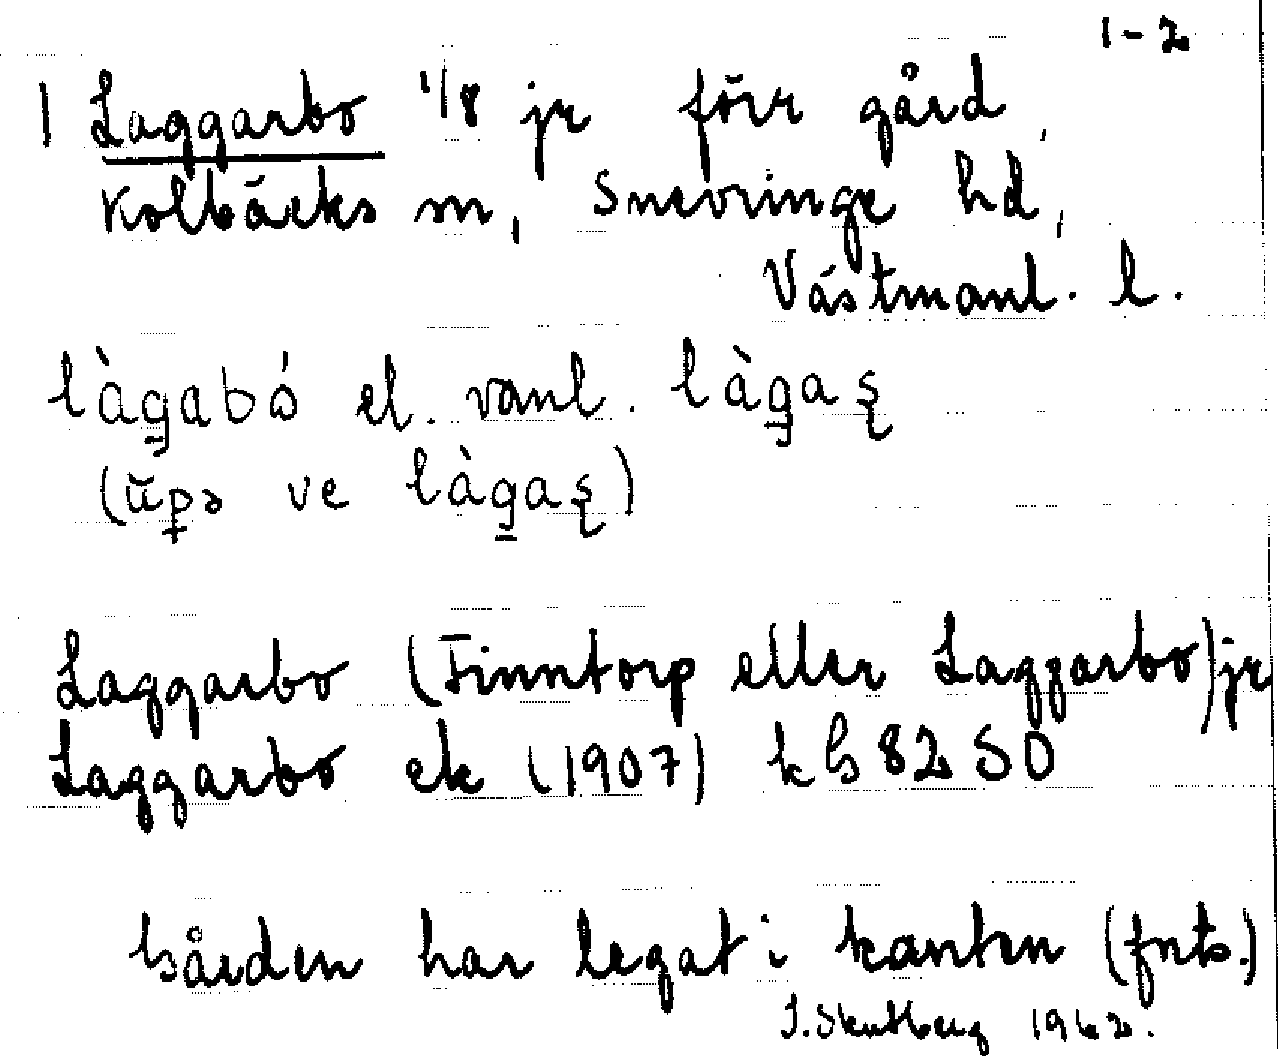 1-2
1 Laggarbo 1/8 jr förr gård,
Kolbäcks sn, Snevringe hd,
Västmanl. l.
làgabó el. vanl. làgaʂ
(ŭpə ve làgaʂ)
Laggarbo (Finntorp eller Laggarbo) jr
Laggarbo ek (1907) kG 82 SO
Gården har legat i kanten (fnts.)
1962.